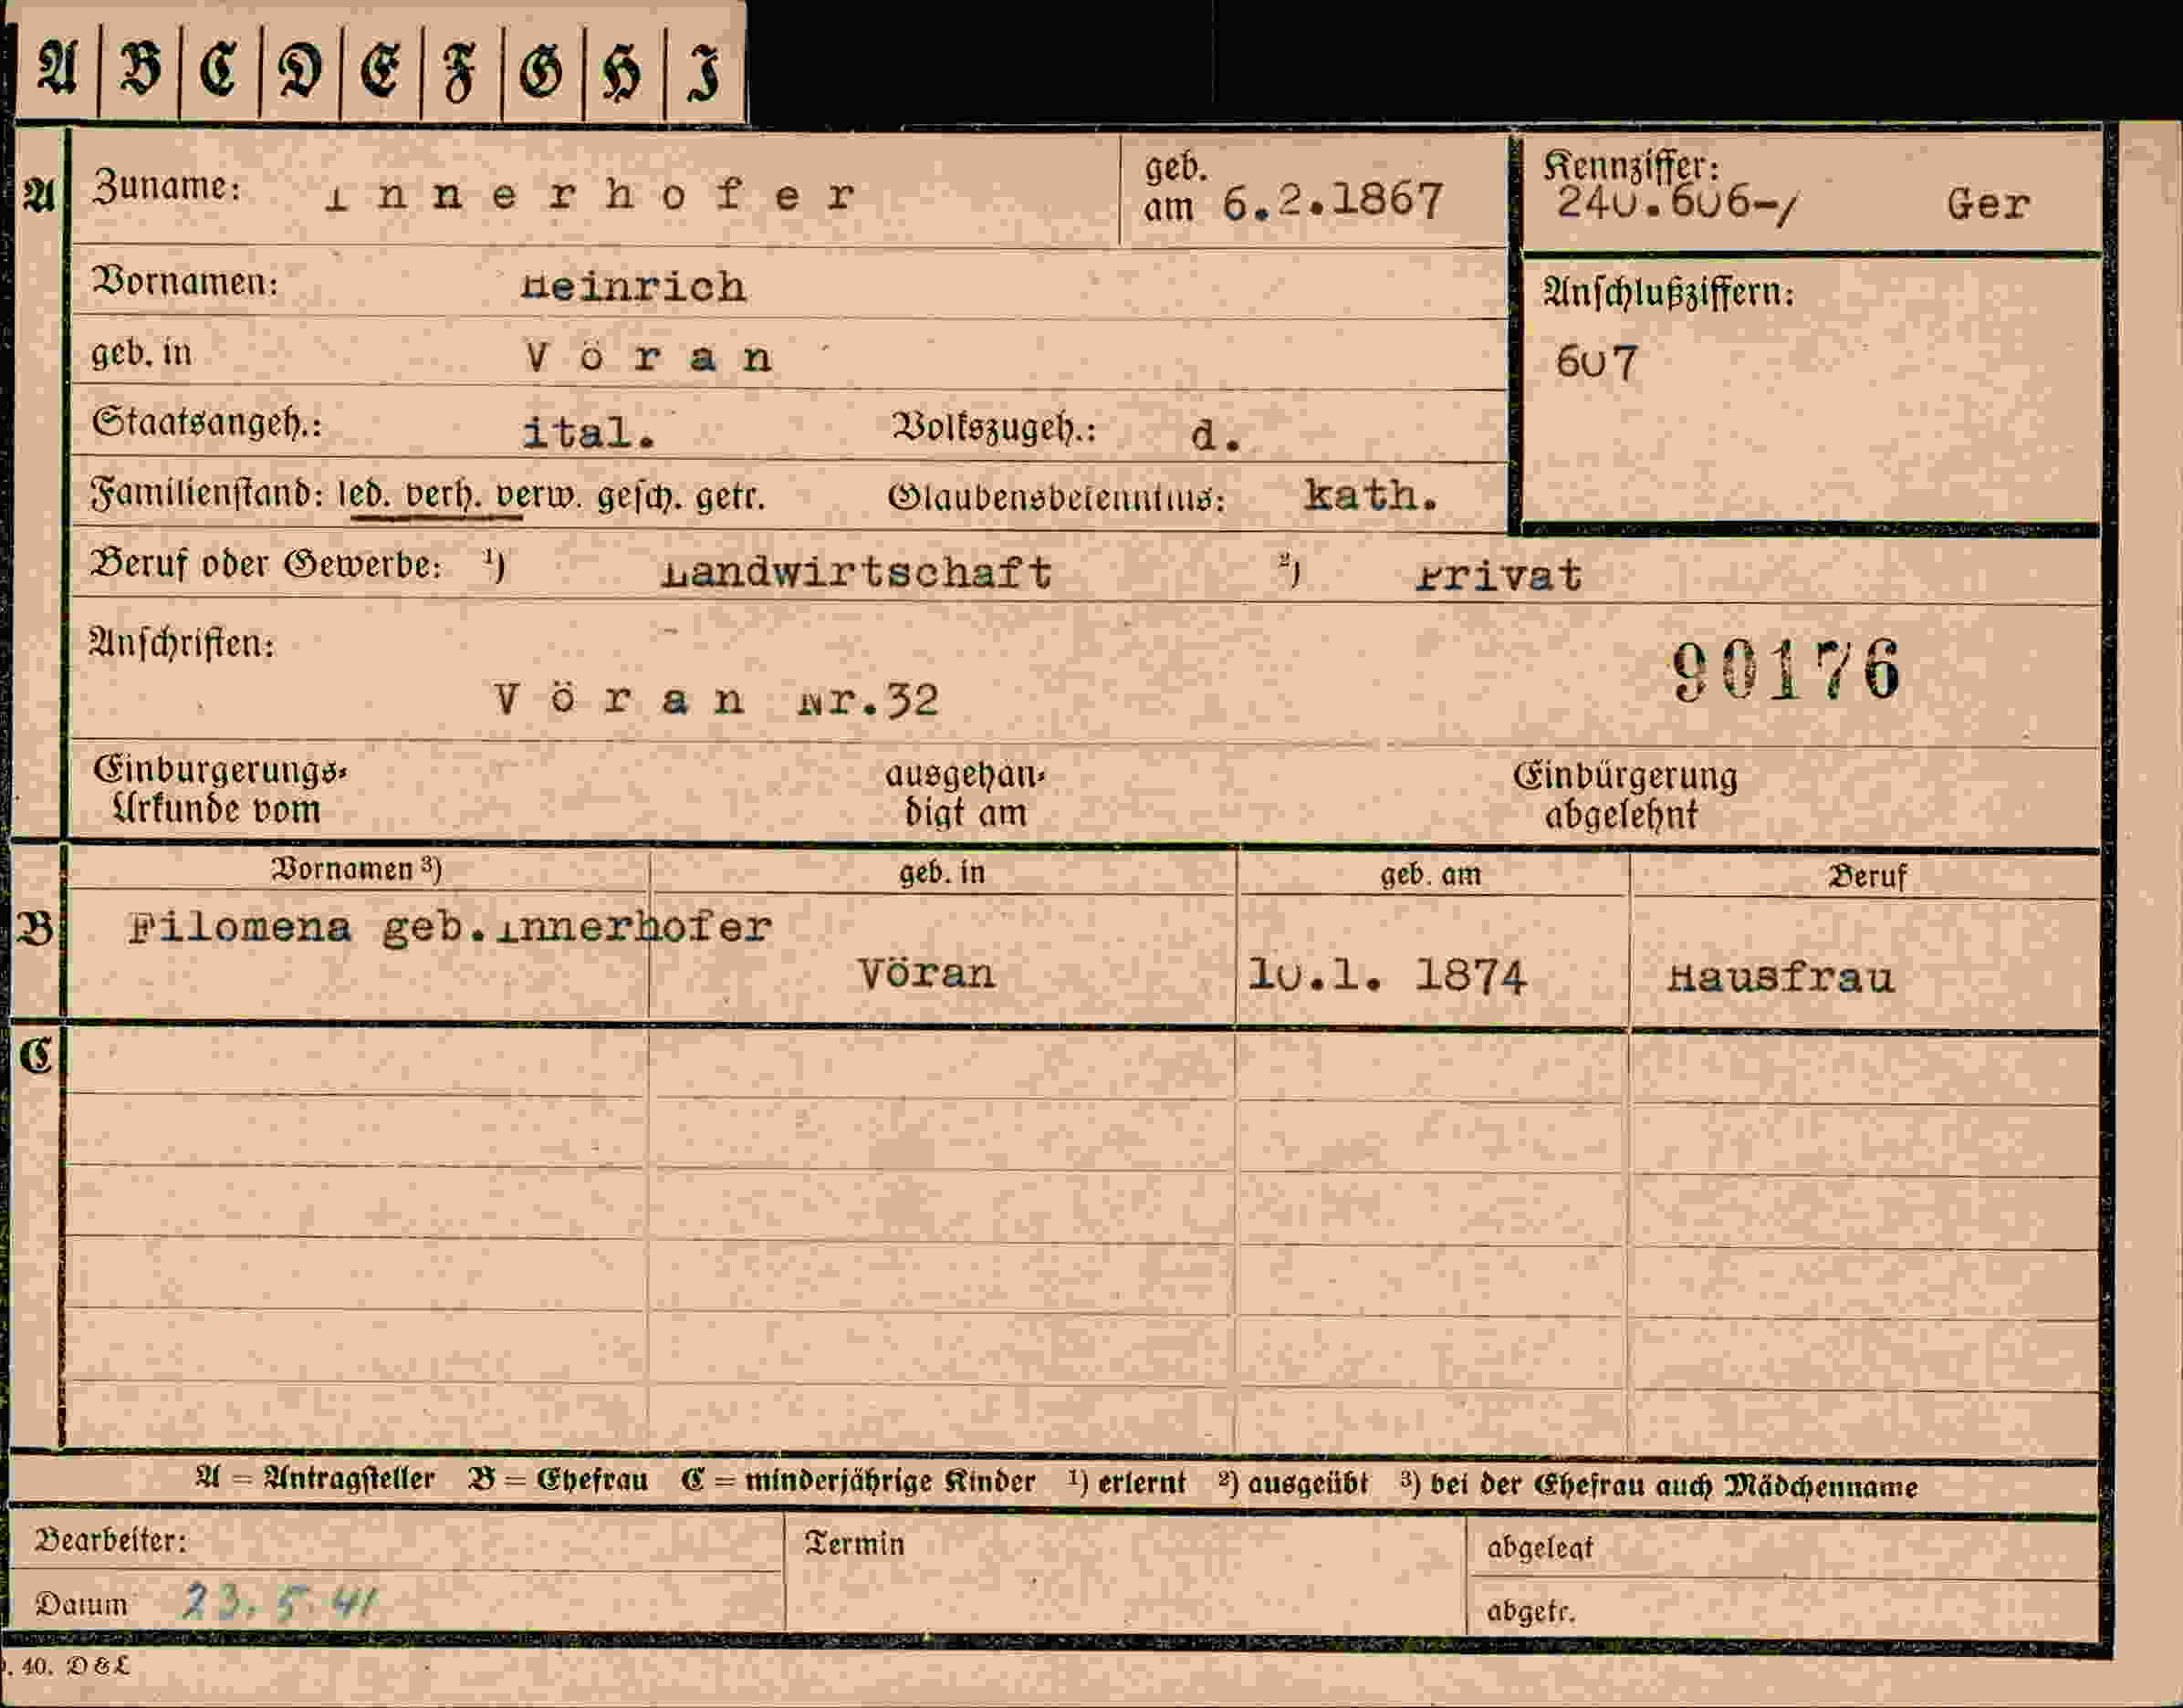 A | B | C | D | E | F | G | H | I
A Zuname: Innerhofer geb. am 6.2.1867 Kennziffer: 240.606-/ Ger
Vornamen: Heinrich Anschlußziffern:
geb. in Vöran 607
Staatsangeh.: ital. Volkszugeh.: d.
Familienstand: led. verh. verw. gesch. getr. Glaubensbekenntnis: kath.
Beruf oder Gewerbe: ¹) Landwirtschaft ²) Privat
Anschriften: 90176
Vöran Nr.32
Einbürgerungs- ausgehän- Einbürgerung
Urkunde vom digt am abgelehnt
Vornamen ³) geb. in geb. am Beruf
B Filomena geb. Innerhofer
Vöran 10.1. 1874 Hausfrau
C
A = Antragsteller B = Ehefrau C = minderjährige Kinder ¹) erlernt ²) ausgeübt ³) bei der Ehefrau auch Mädchenname
Bearbeiter: Termin abgelegt
Datum 23.5.41 abgetr.
. 40. D & L